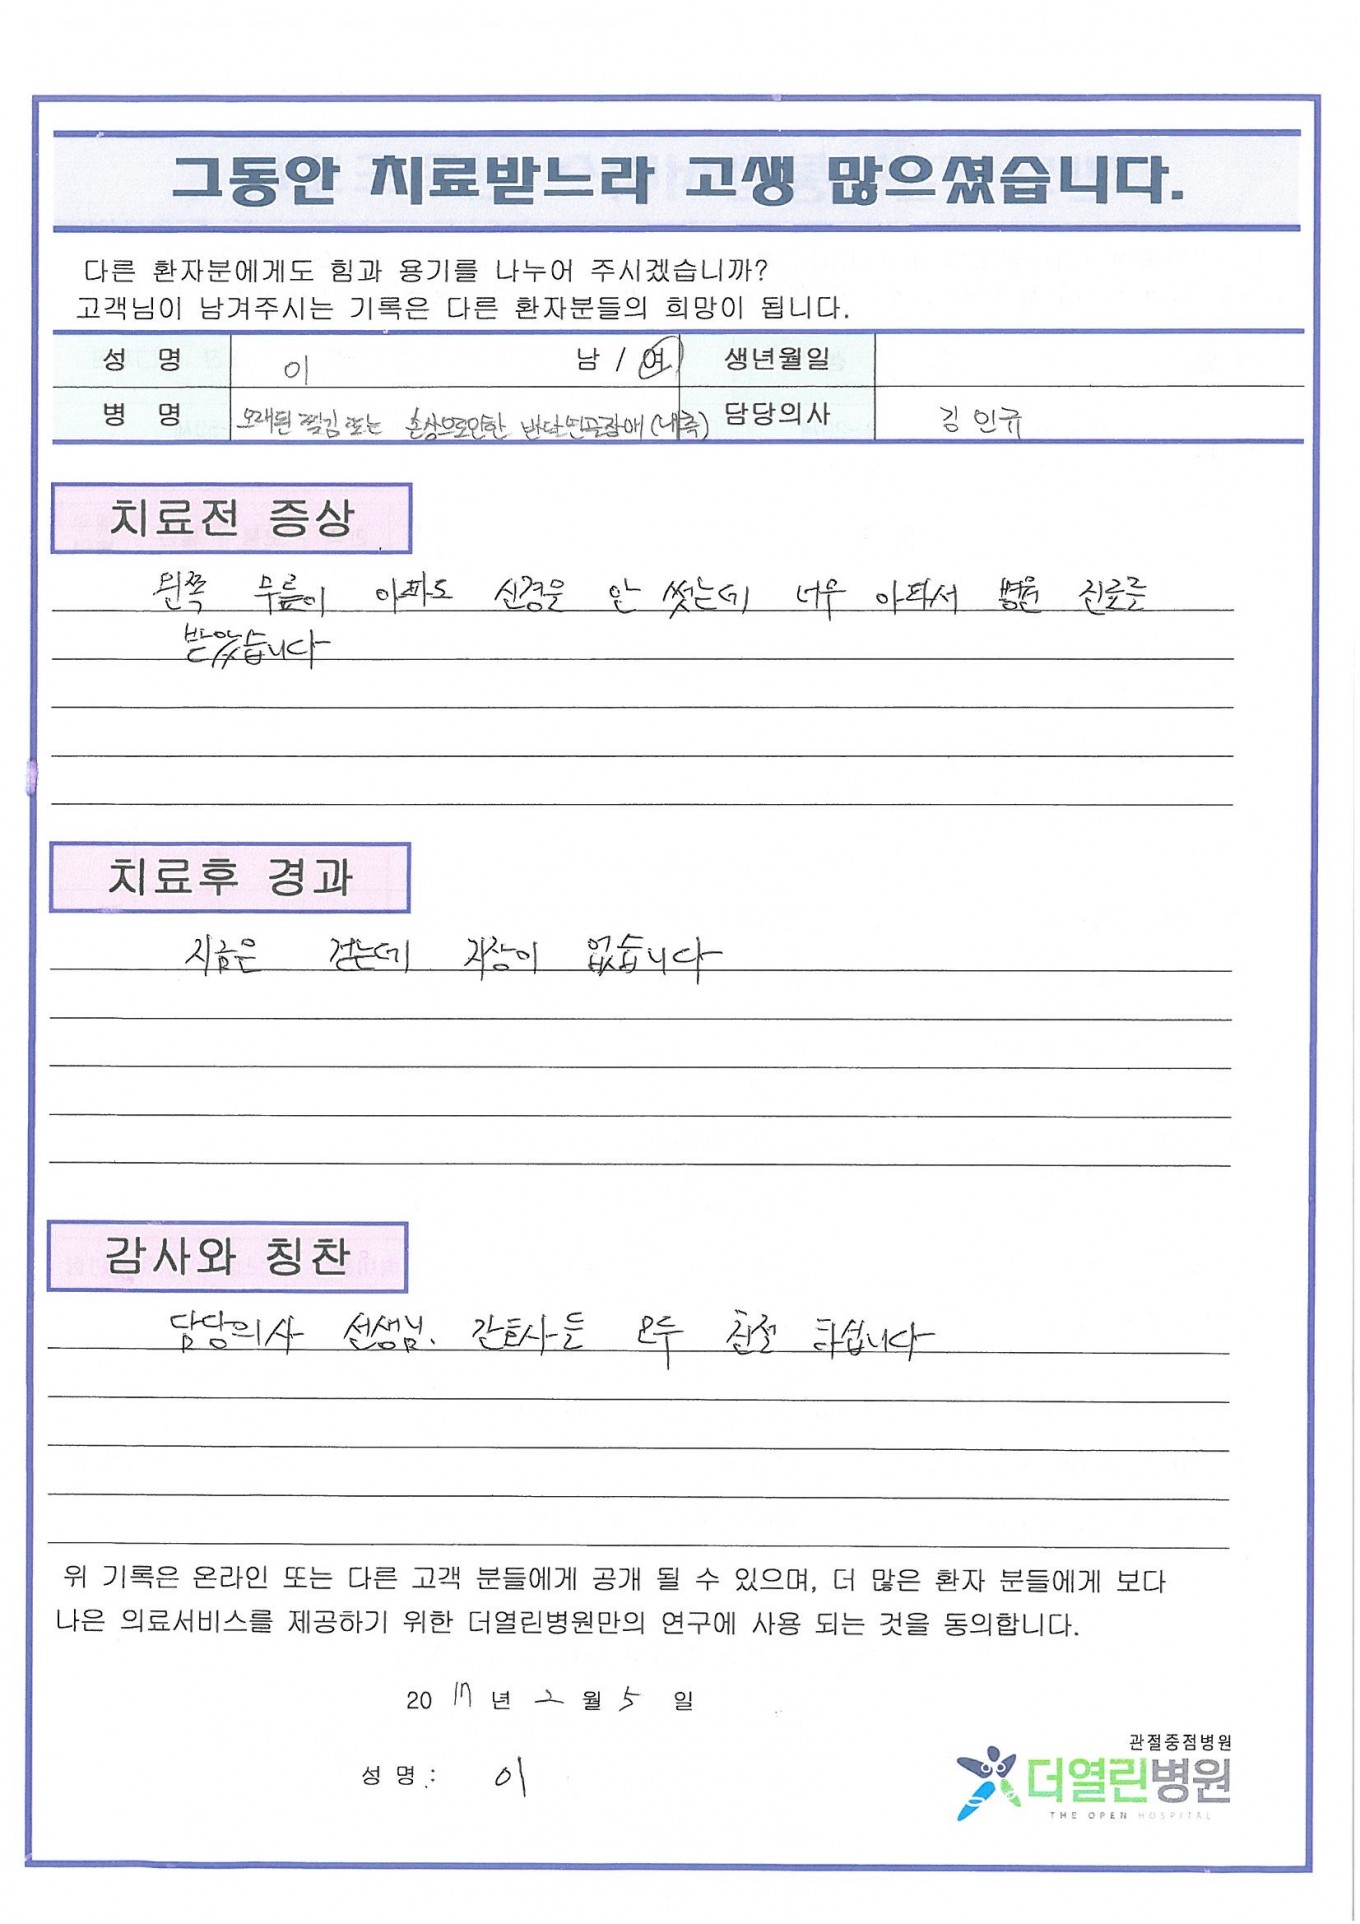 그동안 치료받느라 고생 많으셨습니다.
다른 환자분에게도 힘과 용기를 나누어 주시겠습니까?
고객님이 남겨주시는 기록은 다른 환자분들의 희망이 됩니다.
성 명 이 남 / 여 생년월일
병 명 오래된 찢김 또는 손상으로인한 반달연골장애 (내측) 담당의사 김인규
치료전 증상
왼쪽 무릎이 아파도 신경을 안 썻는데 너무 아파서 병원 진료를
받았습니다
치료후 경과
지금은 걷는데 지장이 없습니다
감사와 칭찬
담당의사 선생님. 간호사들 모두 친절 하십니다
위 기록은 온라인 또는 다른 고객 분들에게 공개 될 수 있으며, 더 많은 환자 분들에게 보다
나은 의료서비스를 제공하기 위한 더열린병원만의 연구에 사용 되는 것을 동의합니다.
2017년 2월 5일
성 명 : 이
관절중점병원
더열린병원
THE OPEN HOSPITAL